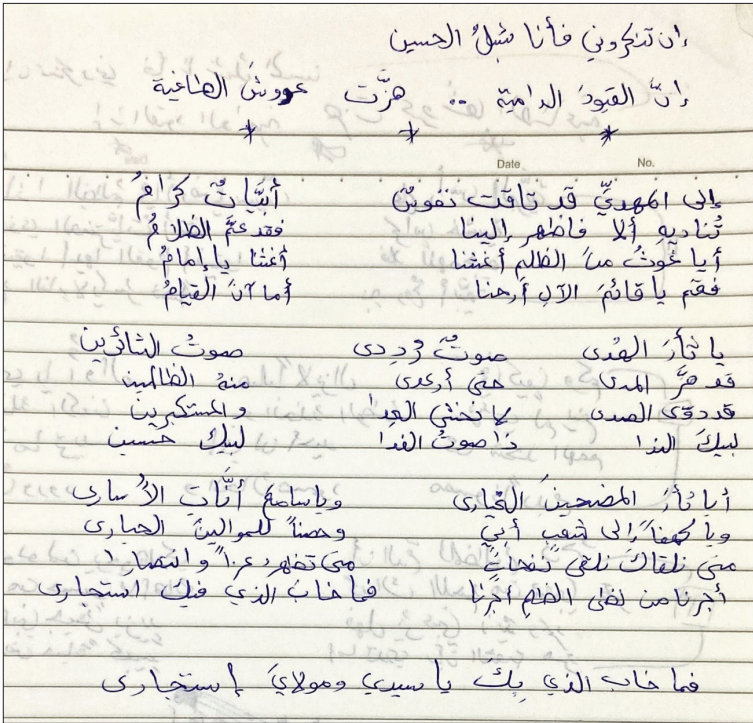 إن تنكروني فأنا شبلُ الحسين
إنَّ القيودَ الدامية .. هزَّت عروشَ الطاغية
* * *
Date No.
إلى المهديِّ قد تاقت نفوسٌ أبيَّاتٌ كرامُ
تُناديه ألا فاظهر إلينا فقد عمَّ الظلامُ
أيا غوثُ منَ الظلمِ أغثنا أغثنا يا إمامُ
فقم يا قائمَ الآلِ أرحنا أما آنَ القيامُ
يا ثأرَ الهُدى صوتٌ رُدِدى صوتُ الثائرين
قد هزَّ المدى حتى أرعدى منهُ الظالمين
قد دوّى الصدى لا نخشى العِدا والمستكبرين
لبيكَ الندا ذا صوتُ الفدا لبيك حسين
أيا ثأرَ المضحينَ الغيارى ويا سامعَ أنَّاتِ الأُسارى
ويا كهفاً إلى شعبٍ أبيٍّ وحصناً للموالينَ الحيارى
متى نلقاكَ نلقى متى تظهر عزاً وانتصارا
أجرنا من لظى الظلمِ أجرنا فما خابَ الذي فيك استجارى
فما خاب الذي بِك يا سيدي ومولايَ إستجارى